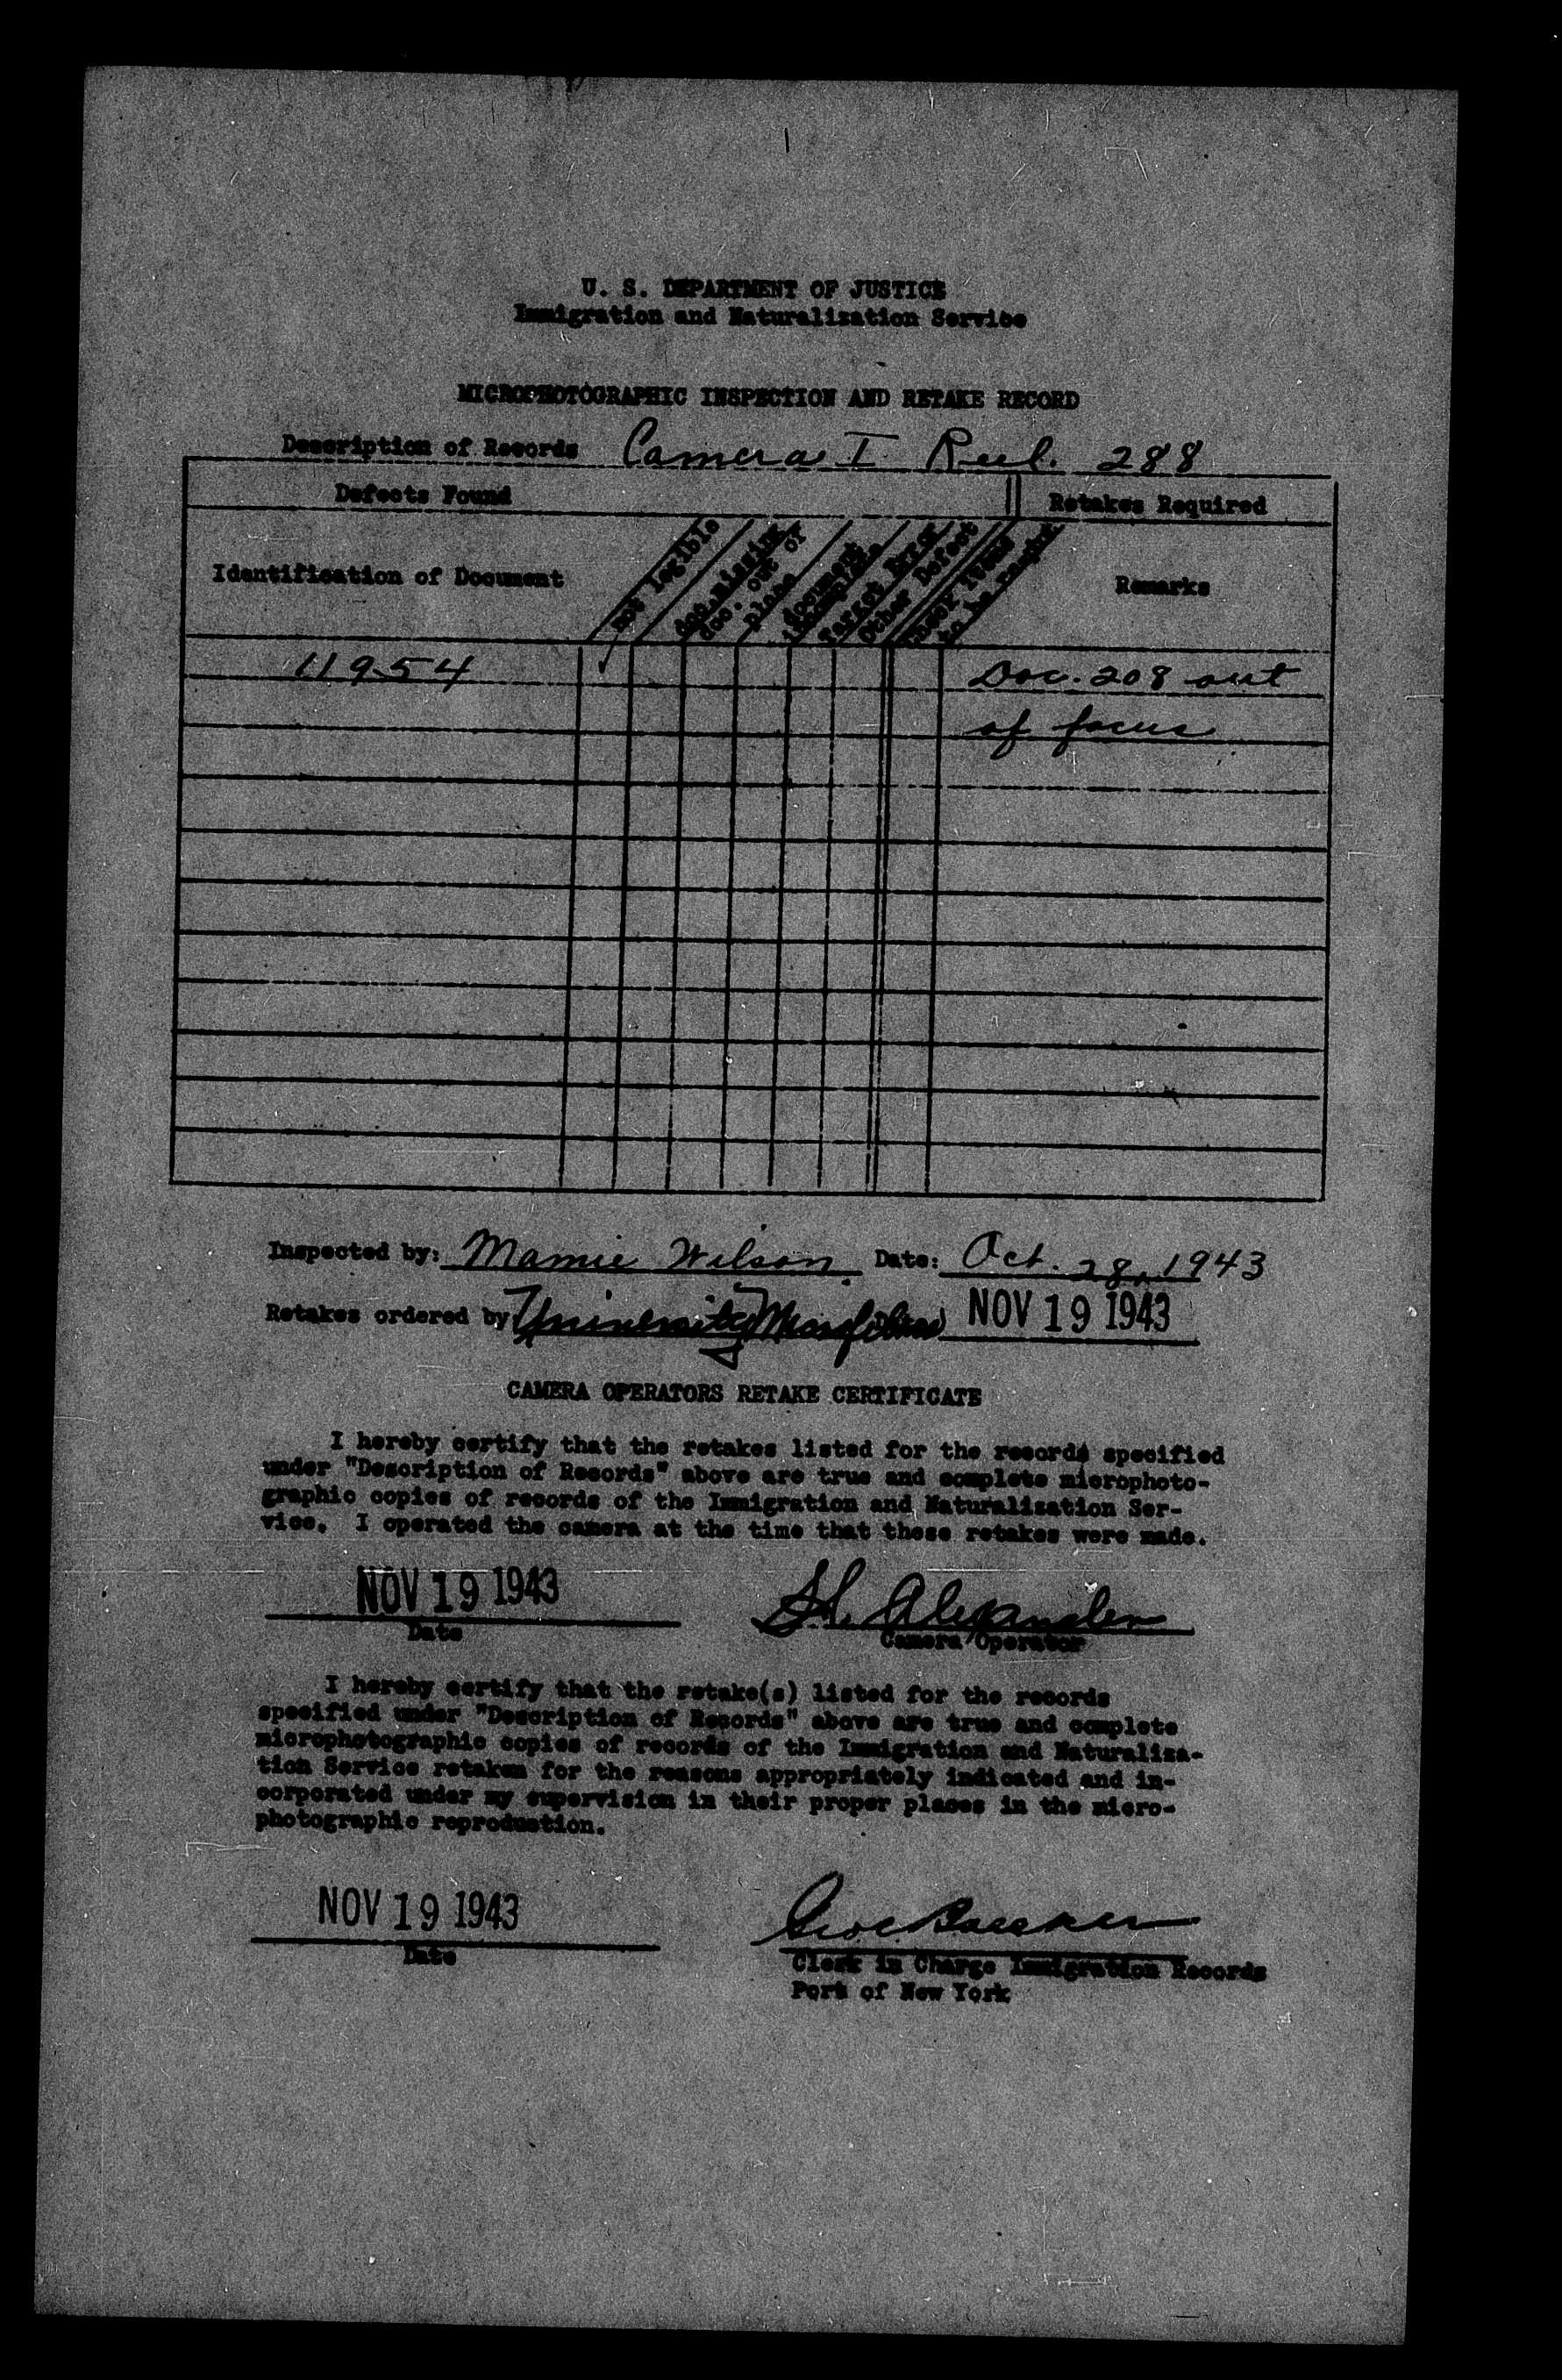 U. S. DEPARTMENT OF JUSTICE
Immigration and Naturalization Service
MICROPHOTOGRAPHIC INSPECTION AND RETAKE RECORD
Description of Records Camera I Reel. 288
Defects Found Retakes Required
Identification of Document not legible doc. missing doc. out of place document incomplete Target Error Other Defect Check items to be Remarks
11954 ✓ Doc. 208 out
of focus
Inspected by: Mamie Wilson Date: Oct. 28, 1943
Retakes ordered by University Microfilms NOV 19 1943
CAMERA OPERATORS RETAKE CERTIFICATE
I hereby certify that the retakes listed for the records specified
under "Description of Records" above are true and complete microphoto-
graphic copies of records of the Immigration and Naturalization Ser-
vice. I operated the camera at the time that these retakes were made.
NOV 19 1943 Alexander
Date Camera Operator
I hereby certify that the retake(s) listed for the records
specified under "Description of Records" above are true and complete
microphotographic copies of records of the Immigration and Naturaliza-
tion Service retaken for the reasons appropriately indicated and in-
corporated under my supervision in their proper places in the micro-
photographic reproduction.
NOV 19 1943
Date Clerk in Charge Immigration Records
Port of New York